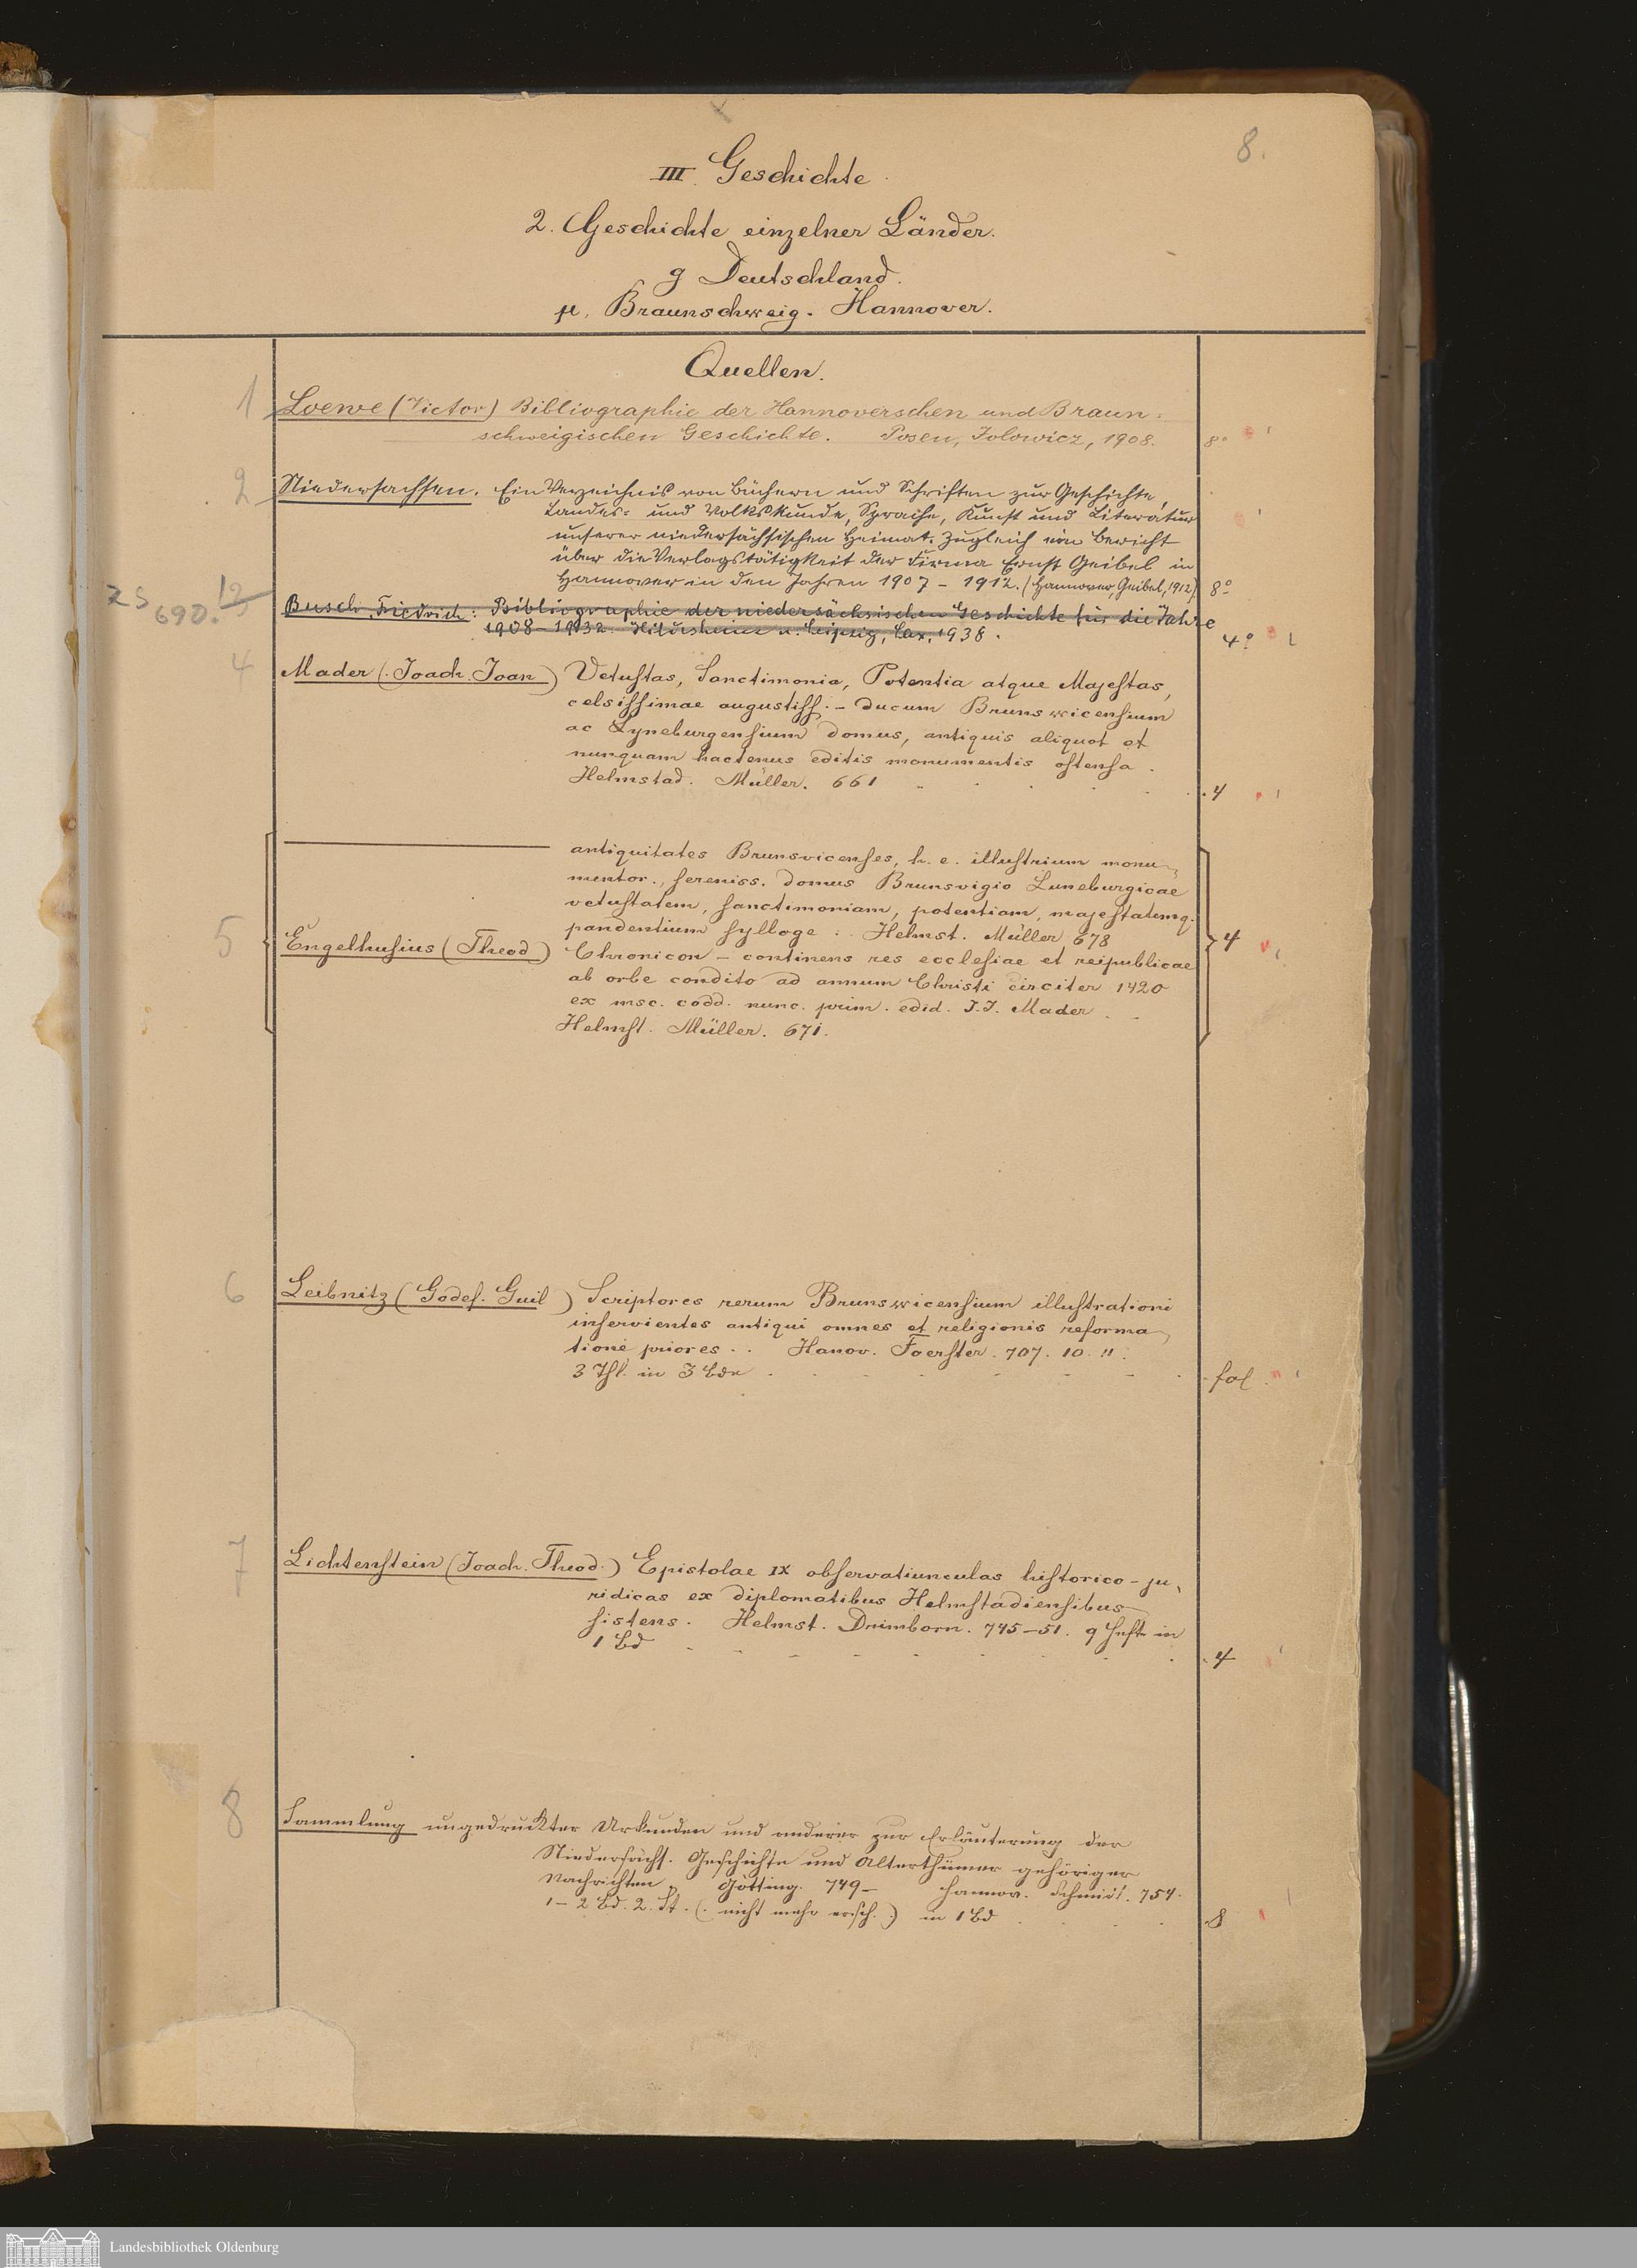 8.
III. Geschichte.
2. Geschichte einzelner Länder.
g Deutschland.
µ. Braunschweig. Hannover.
Quellen.
1 Loewe (Victor) Bibliographie der Hannoverschen und Braun=
schweigischen Geschichte. Posen, Jolowicz, 1908. 8°
2 Niedersachsen. Ein Verzeichnis von Büchern und Schriften zur Geschichte,
Landes= und Volkskunde, Sprache, Kunst und Literatur
unserer niedersächsischen Heimat. Zugleich ein Bericht
über die Verlagstätigkeit der Firma Ernst Geibel in
Hannover in den Jahren 1907 - 1912. (Hannover, Geibel, 1912). 8°
ZS 690.
Busch, Friedrich: Bibliographie der niedersächsischen Geschichte für die Jahre
1908-1932. Hildesheim u. Leipzig, Lax, 1938. 4°
4 Mader (Joach. Joan) Vetustas, Sanctimonia, Potentia atque Majestas,
celsissimae augustiss. - Ducum Brunswicensium
ac Lyneburgensium domus, antiquis aliquot et
nunquam hactenus editis monumentis ostensa.
Helmstad. Müller. 661 4
antiquitates Brunsvicenses, h. e. illustrium monu-
mentor., sereniss. domus Brunsvigio Luneburgicae
vetustatem, sanctimoniam, potentiam, majestatemq.
pandentium sylloge. Helmst. Müller 678
5 Engelhusius (Theod) Chronicon - continens res ecclesiae et reipublicae 4
ab orbe condito ad annum Christi circiter 1420
ex msc. codd. nunc. prim. edid. J. J. Mader
Helmst. Müller. 671.
6 Leibnitz (Godef. Guil) Scriptores rerum Brunswicensium illustrationi
inservientes antiqui omnes et religionis reforma-
tione priores.. Hanov. Foerster. 707. 10. 11.
3 Thl. in 3 Bde fol.
7 Lichtenstein (Joach. Theod.) Epistolae IX observatiunculas historico-ju-
ridicas ex diplomatibus Helmstadiensibus
sistens. Helmst. Drimborn. 745-51. 9 Hefte in
1 Bd 4
8 Sammlung ungedruckter Urkunden und anderer zur Erläuterung der
Niedersächs. Geschichte und Alterthümer gehöriger
Nachrichten. Götting. 749- Hannov. Schmidt. 754.
1-2 Bd. 2. St. (nicht mehr ersch.) in 1 Bd 8
Landesbibliothek Oldenburg